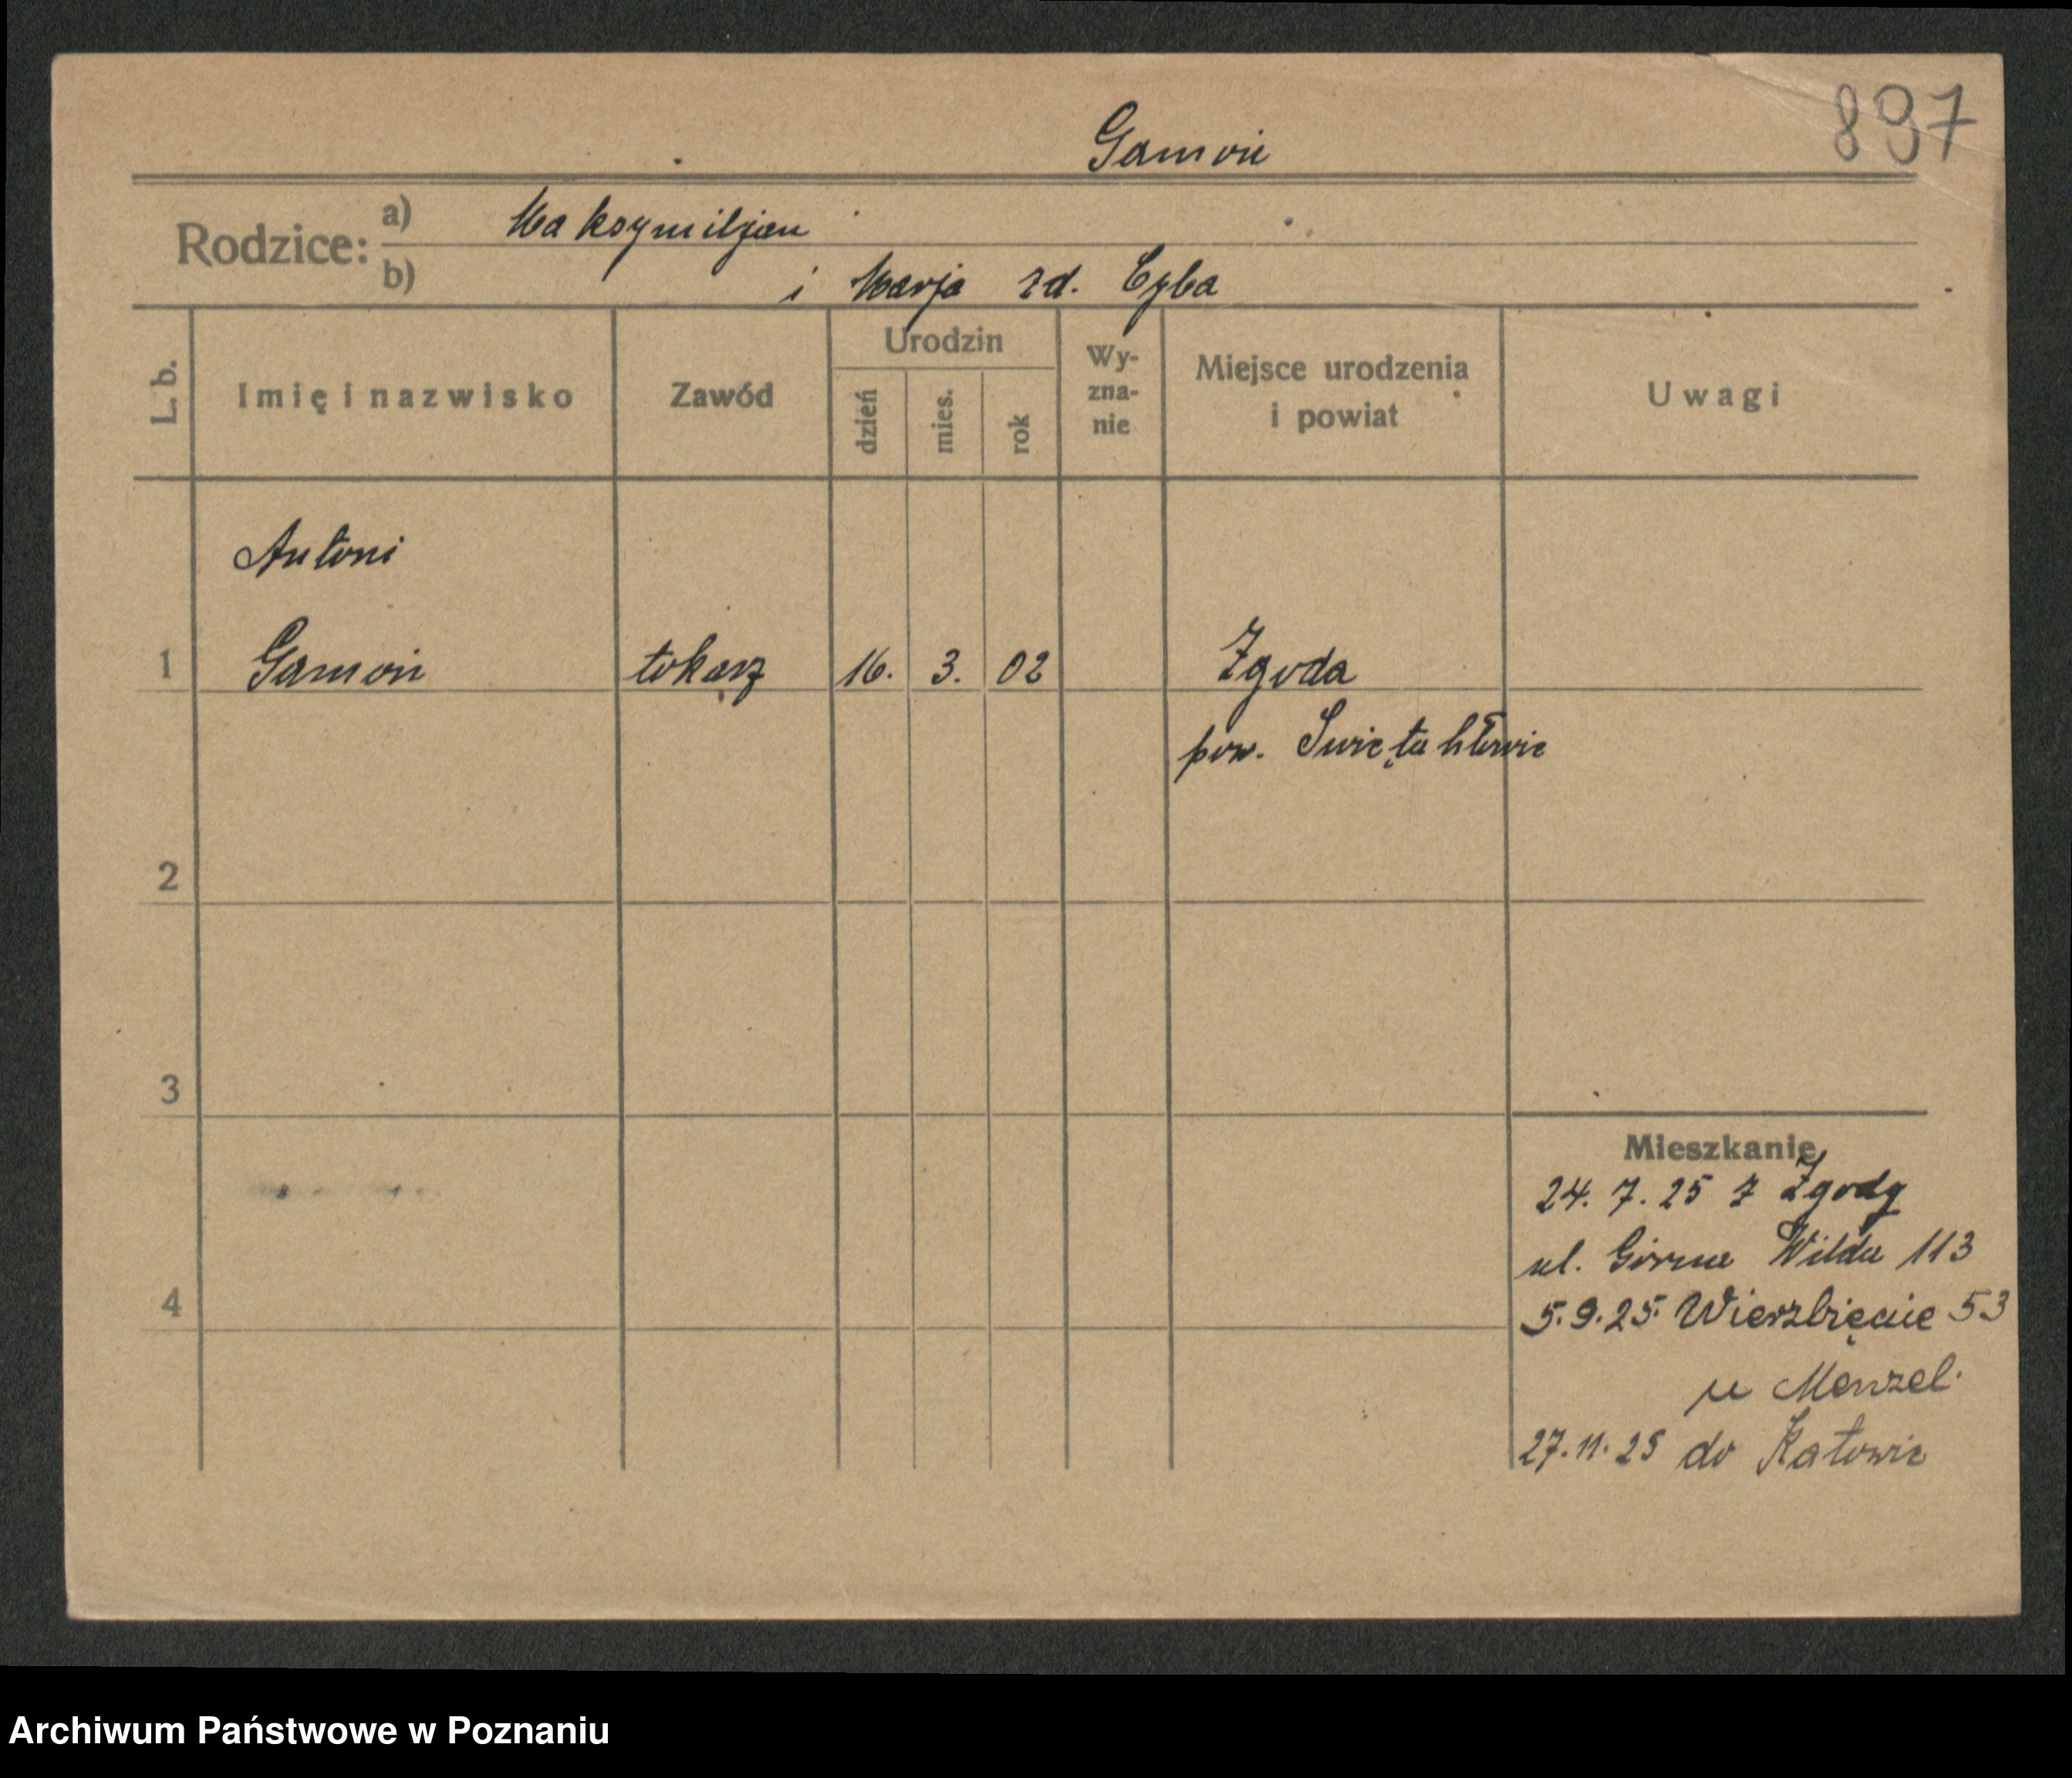 897
Gamoń
Rodzice: a) Maksymiljan
b) i Marja zd. Cyba
L. b.
Imię i nazwisko
Zawód
Urodzin
dzień
mies.
rok
Wy-
zna-
nie
Miejsce urodzenia
i powiat
Uwagi
Antoni
1 Gamoń tokarz 16. 3. 02 Zgoda
pow. Świętochłowic
2
3
Mieszkanie
24. 7. 25 z Zgody
ul. Górna Wilda 113
4
5. 9. 25. Wierzbięcie 53
u Menzel.
27. 11. 25 do Katowic
Archiwum Państwowe w Poznaniu